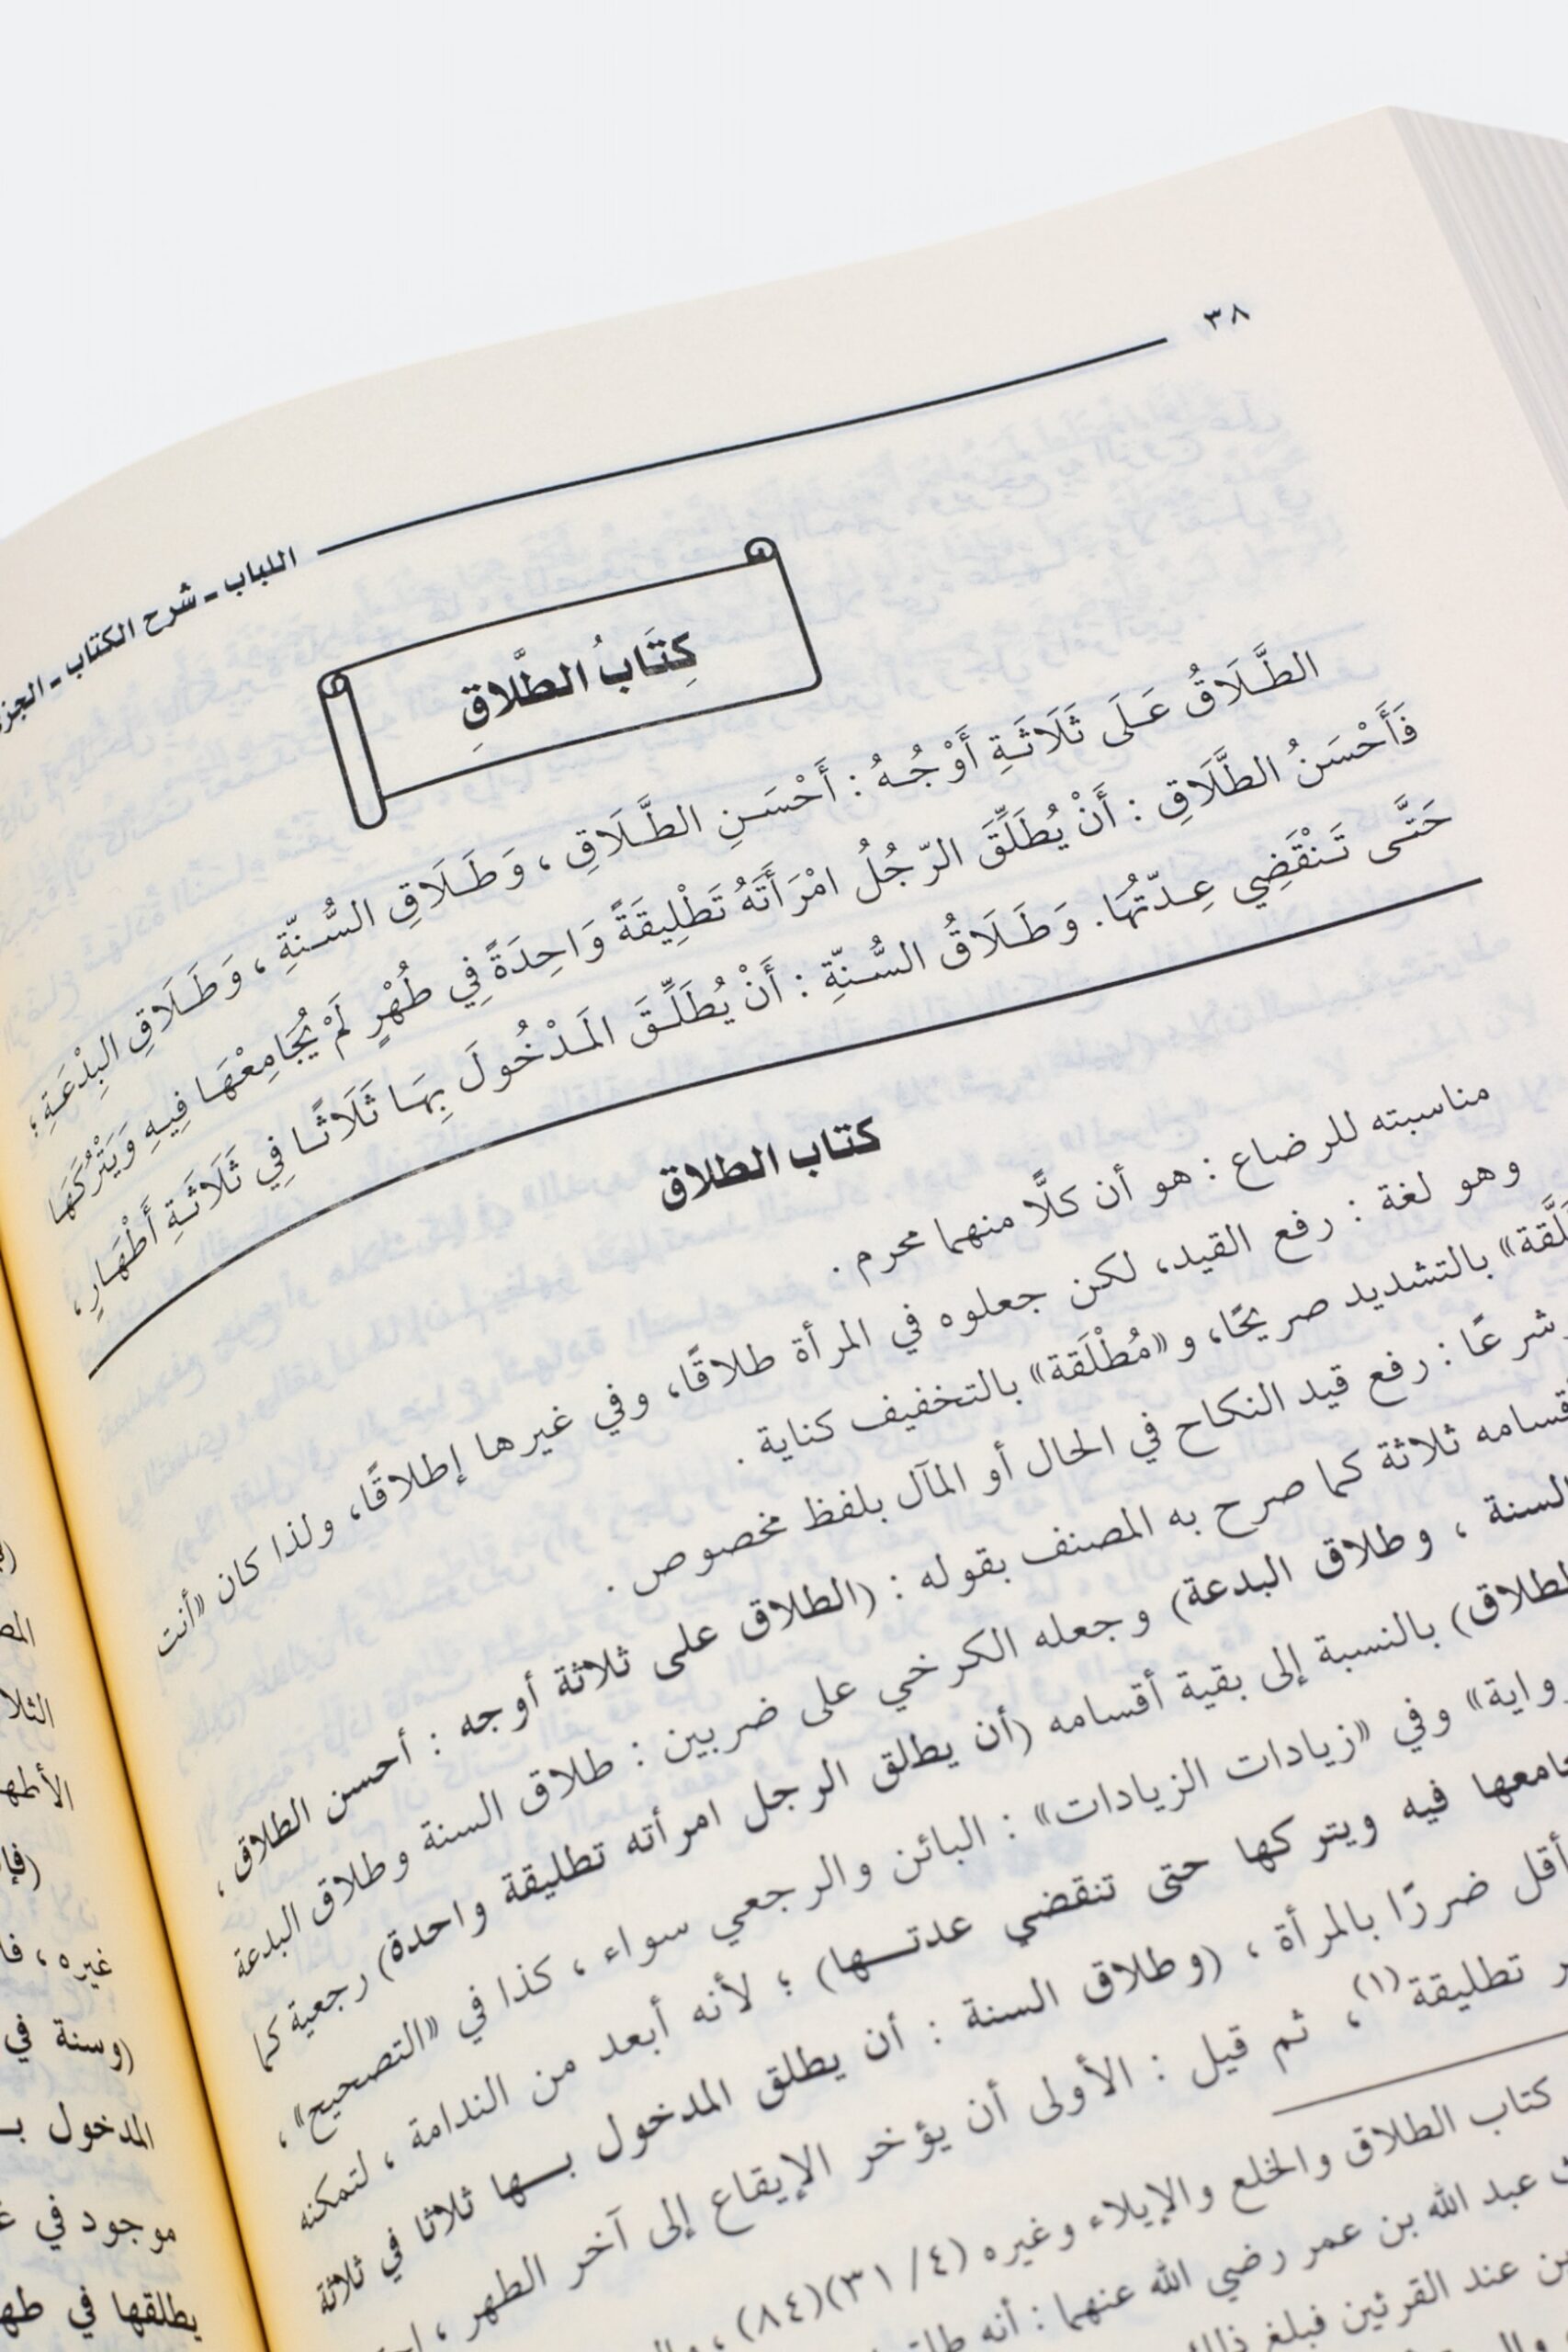 ٣٨
اللباب ـ شرح الكتاب ـ
كِتَابُ الطَّلاقِ
الطَّلَاقُ عَلَى ثَلَاثَةِ أَوْجُهُ : أَحْسَنِ الطَّلَاقِ ، وَطَلَاقِ السُّنّةِ ، وَطَلَاقِ البِدْعَةِ ؛
فَأَحْسَنُ الطَّلَاقِ : أَنْ يُطَلِّقَ الرّجُلُ امْرَأَتَهُ تَطْلِيقَةً وَاحِدَةً فِي طُهْرٍ لَمْ يُجَامِعْهَا فِيهِ وَيَتْرُكَهَا
حَتَّى تَنْقَضِي عِدّتُهَا. وَطَلَاقُ السُّنّةِ : أَنْ يُطَلِّقَ المَدْخُولَ بِهَا ثَلَاثًا فِي ثَلَاثَةِ أَطْهَارٍ ،
كتاب الطلاق
مناسبته للرضاع : هو أن كلًّا منهما محرم .
وهو لغة : رفع القيد، لكن جعلوه في المرأة طلاقًا، وفي غيرها إطلاقًا، ولذا كان «أنت
بالتشديد صريحًا، و«مُطْلَقة» بالتخفيف كناية .
شرعًا : رفع قيد النكاح في الحال أو المآل بلفظ مخصوص .
ثلاثة كما صرح به المصنف بقوله : (الطلاق على ثلاثة أوجه : أحسن الطلاق ،
السنة ، وطلاق البدعة) وجعله الكرخي على ضربين : طلاق السنة وطلاق البدعة
بالنسبة إلى بقية أقسامه (أن يطلق الرجل امرأته تطليقة واحدة) رجعية كما
وفي «زيادات الزيادات» : البائن والرجعي سواء ، كذا في «التصحيح» ،
فيه ويتركها حتى تنقضي عدتـها) ؛ لأنه أبعد من الندامة ، لتمكنه
أقل ضررًا بالمرأة ، (وطلاق السنة : أن يطلق المدخول بـها ثلاثا في ثلاثة
تطليقة(١)، ثم قيل : الأولى أن يؤخر الإيقاع إلى آخر الطهر ،
كتاب الطلاق والخلع والإيلاء وغيره (٤/ ٣١)(٨٤)
عبد الله بن عمر رضي الله عنهما : أنه
عند القرئين فبلغ
غيره ،
(وسنة في
المدخول
موجود في
يطلقها في